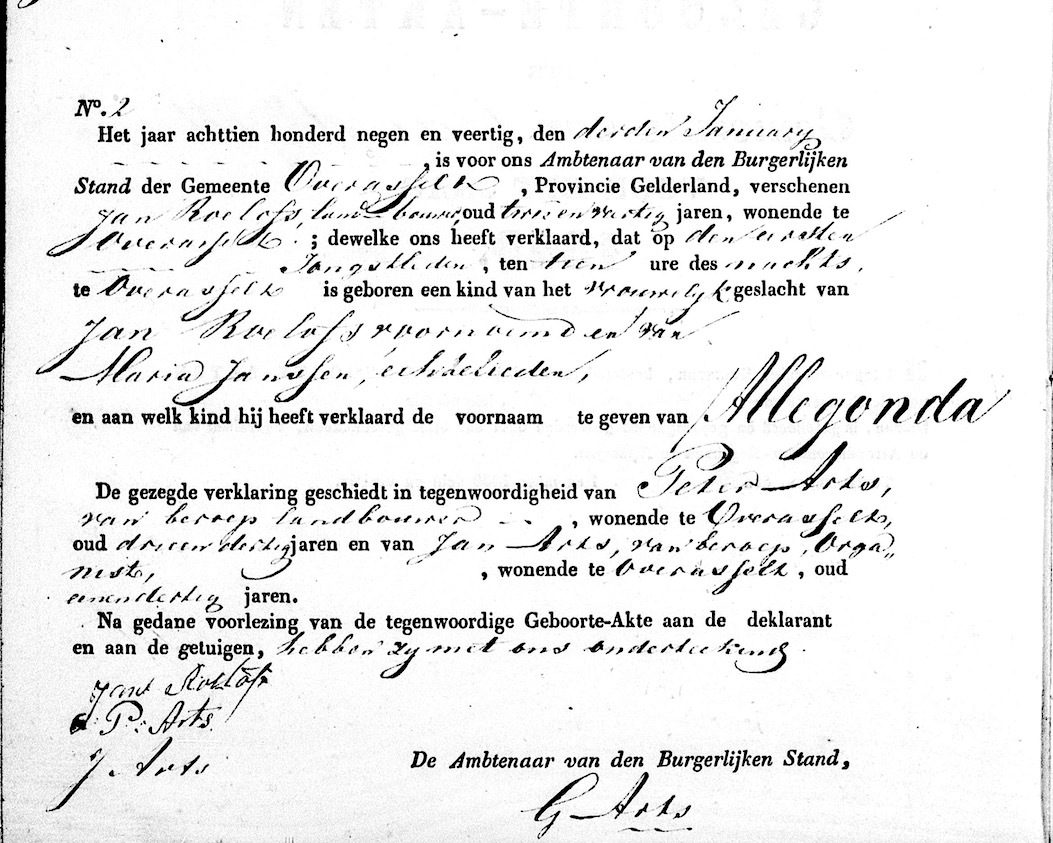 N°. 2
Het jaar achttien honderd negen en veertig, den derden January
, is voor ons Ambtenaar van den Burgerlijken
Stand der Gemeente Overasselt , Provincie Gelderland, verschenen
Jan Roelofs, landbouwer, oud twee en veertig jaren, wonende te
Overasselt ; dewelke ons heeft verklaard, dat op den eersten
Jongstleden , ten tien ure des nachts,
te Overasselt is geboren een kind van het vrouwelijk geslacht van
Jan Roelofs voornoemd en van
Maria Janssen, echtelieden,
en aan welk kind hij heeft verklaard de voornaam te geven van Allegonda
De gezegde verklaring geschiedt in tegenwoordigheid van Peter Arts,
van beroep landbouwer , wonende te Overasselt,
oud drieendertig jaren en van Jan Arts, van beroep, Orga„
nist, , wonende te Overasselt , oud
eenendertig jaren.
Na gedane voorlezing van de tegenwoordige Geboorte-Akte aan de deklarant
en aan de getuigen, hebben zy met ons onderteekend
Jan Roelofs
P: Arts.
J Arts
De Ambtenaar van den Burgerlijken Stand,
G Arts